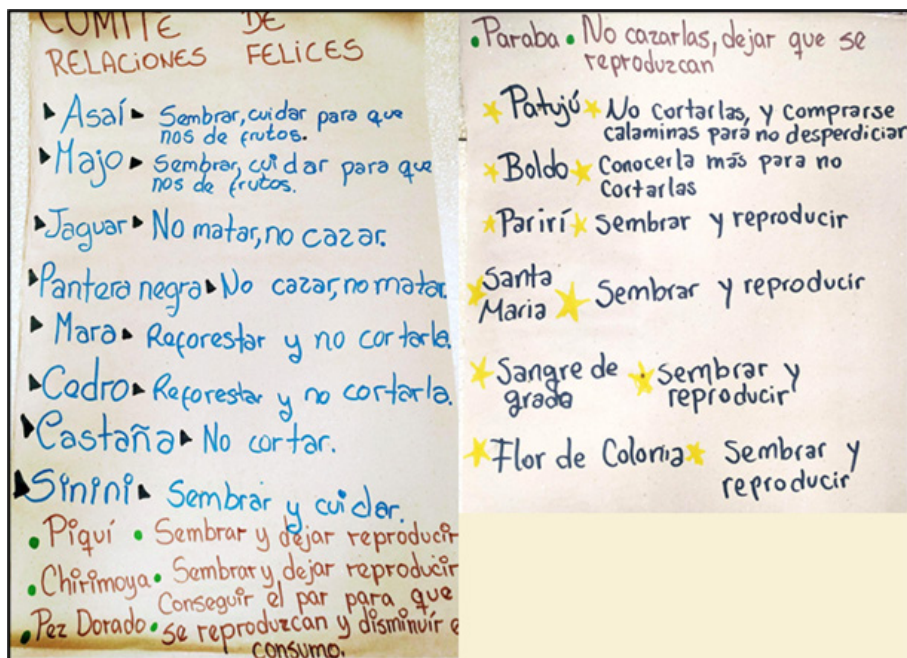 COMITÉ DE
RELACIONES FELICES
Asaí Sembrar, cuidar para que
nos de frutos.
Majo Sembrar, cuidar para que
nos de frutos.
Jaguar No matar, no cazar.
Pantera negra No cazar, no matar.
Mara Reforestar y no cortarla.
Cedro Reforestar y no cortarla.
Castaña No cortar.
Sinini Sembrar y cuidar.
Piquí Sembrar y dejar reproducir
Chirimoya Sembrar y dejar reproducir
Pez Dorado Conseguir el par para que
se reproduzcan y disminuír e
consumo.
Paraba No cazarlas, dejar que se
reproduzcan
Patujú No cortarlas, y comprarse
calaminas para no desperdiciar
Boldo Conocerla más para no
cortarlas
Parirí Sembrar y reproducir
Santa
Maria Sembrar y reproducir
Sangre de
grada Sembrar y
reproducir
Flor de Colonia Sembrar y
reproducir